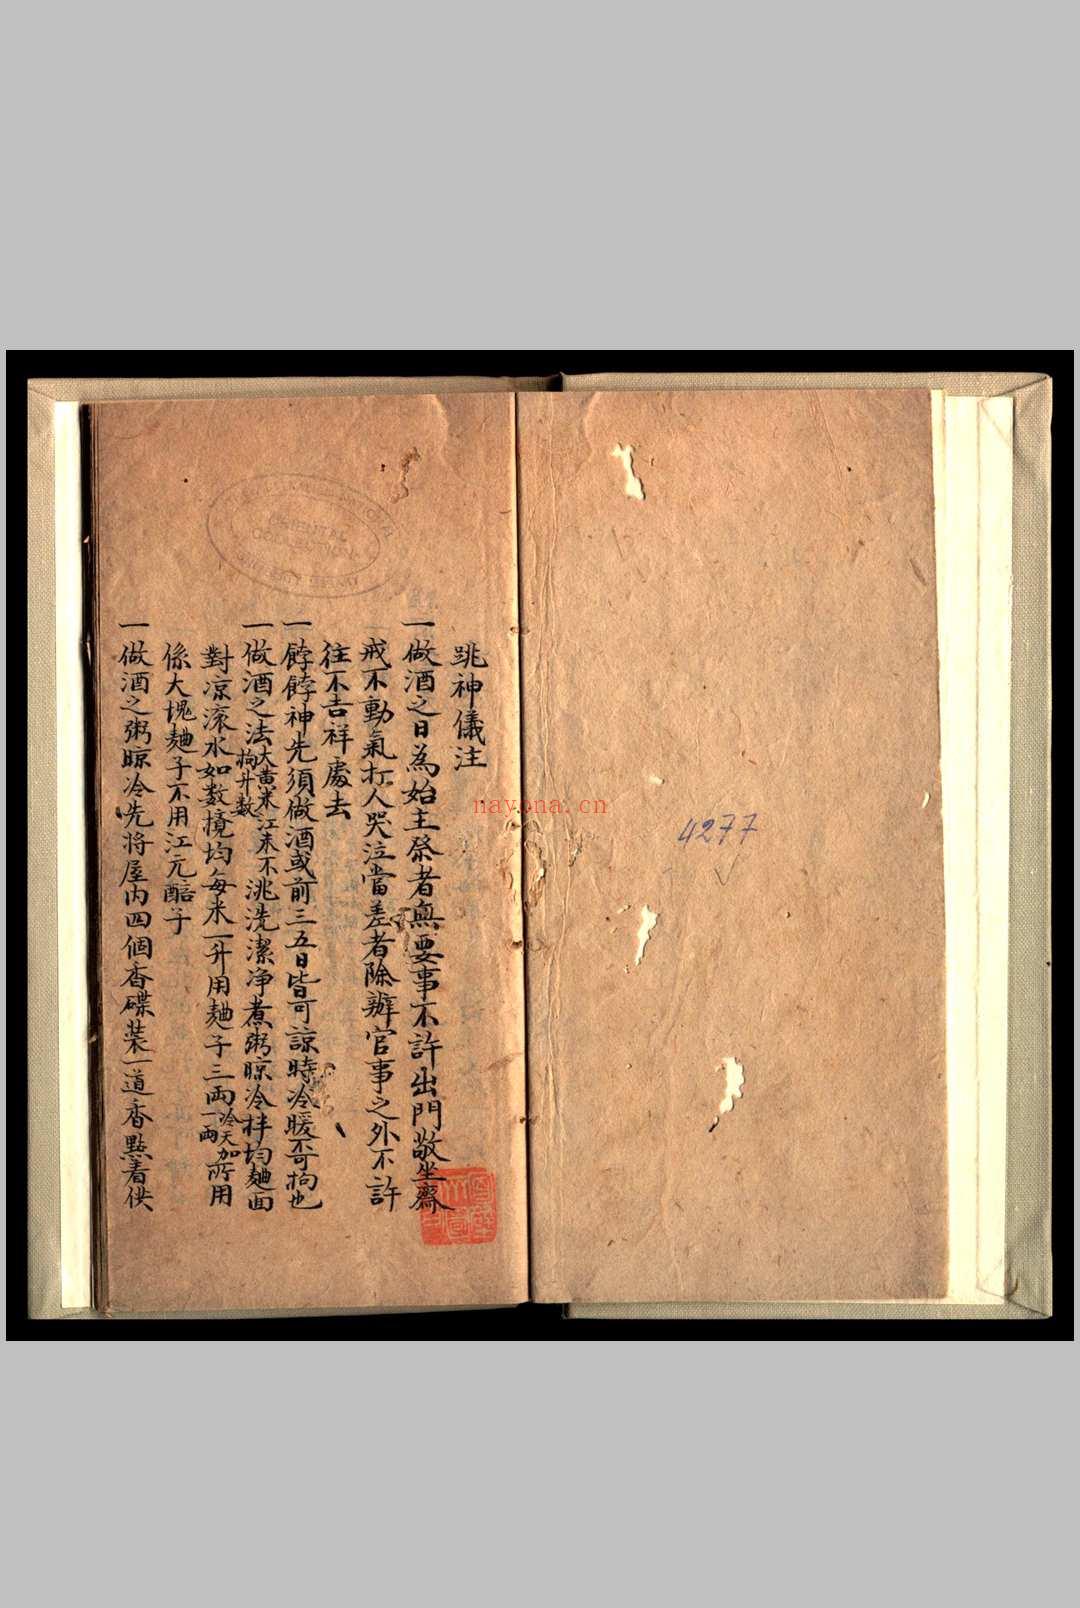 跳神儀注
一做酒之日為始主祭者無要事不許出門敬坐齋
戒不動氣打人哭泣當差者除辦官事之外不許
往不吉祥處去
一餑餑神先須做酒或前三五日皆可諒時冷暖不可拘也
一做酒之法大黃米江米不拘升數洮洗潔净煮粥晾冷拌均麯面
對凉滾水如数攪均每米一升用麯子三兩冷天加一兩所用
係大塊麯子不用江元醅子
一做酒之粥晾冷先将屋内四個香碟装一道香㸃着供
4277
ORIENTAL
COLLECTION
nayona.cn